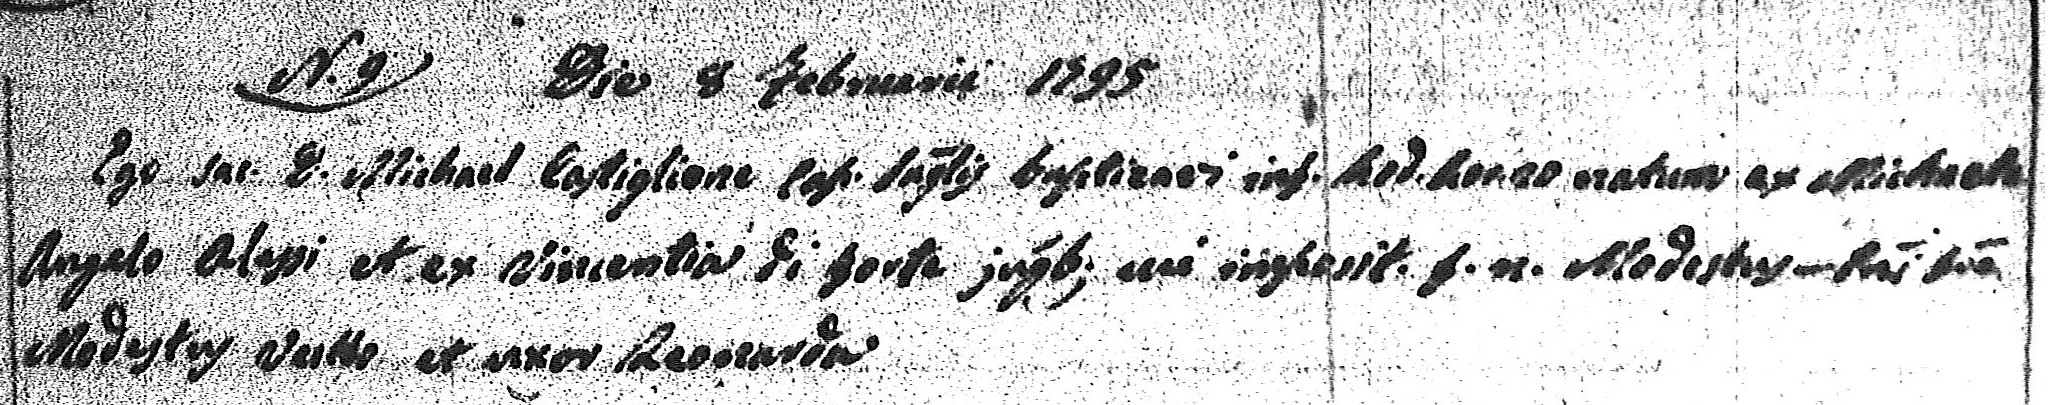 N. 9 Die 8 Februarii 1795
Ego sac. D. Michael Castiglione Cap. baptizavi inf. hod. natum ex Michaele
Angelo Alessi et ex Vincentia di Porta jug. cui imposit. f. n. Modestus
Modestus et uxor Leonarda